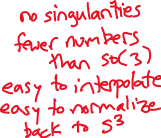 no singularities
fewer numbers
than so(3)
easy to interpolate
easy to normalize
back to S³